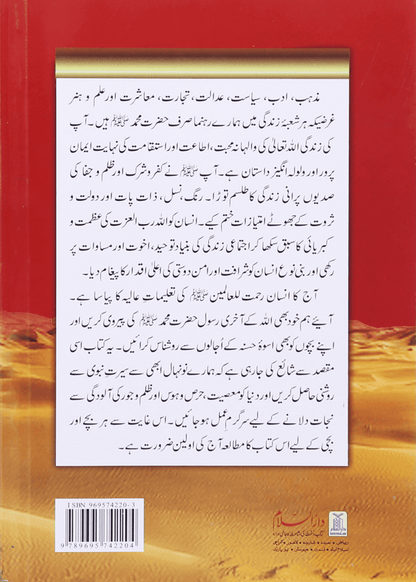 مذہب، ادب، سیاست، عدالت، تجارت، معاشرت اور علم و ہنر
غرضیکہ ہر شعبۂ زندگی میں ہمارے رہنما صرف حضرت محمد ﷺ ہیں۔ آپ
کی زندگی اللہ تعالیٰ کی والہانہ محبت، اطاعت اور استقامت کی نہایت ایمان
پرور اور ولولہ انگیز داستان ہے۔ آپ ﷺ نے کفر و شرک اور ظلم و جفا کی
صدیوں پرانی زندگی کا طلسم توڑا۔ رنگ، نسل، ذات پات اور دولت و
ثروت کے جھوٹے امتیازات ختم کیے۔ انسان کو اللہ رب العزت کی عظمت و
کبریائی کا سبق سکھا کر اجتماعی زندگی کی بنیاد توحید، اخوت اور مساوات پر
رکھی اور بنی نوع انسان کو شرافت اور امن دوستی کی اعلیٰ اقدار کا پیغام دیا۔
آج کا انسان رحمت للعالمین ﷺ کی تعلیماتِ عالیہ کا پیاسا ہے۔
آئیے ہم خود بھی اللہ کے آخری رسول حضرت محمد ﷺ کی پیروی کریں اور
اپنے بچوں کو بھی اسوۂ حسنہ کے اُجالوں سے روشناس کرائیں۔ یہ کتاب اسی
مقصد سے شائع کی جا رہی ہے کہ ہمارے نونہال ابھی سے سیرت نبوی سے
روشنی حاصل کریں اور دنیا کو معصیت، حرص و ہوس اور ظلم و جور کی آلودگی سے
نجات دلانے کے لیے سرگرم عمل ہو جائیں۔ اس غایت سے ہر بچے اور
بچی کے لیے اس کتاب کا مطالعہ آج کی اولین ضرورت ہے۔
ISBN 969574220-3
9 789695 742204
دارالسلام